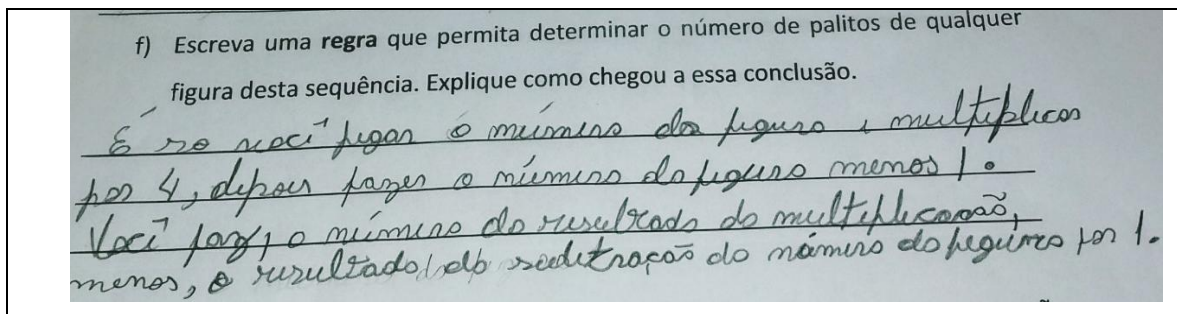 f) Escreva uma regra que permita determinar o número de palitos de qualquer
figura desta sequência. Explique como chegou a essa conclusão.
É so você pegar o número da figura e multiplicar
por 4, depois fazer o número da figura menos 1.
Você faz, o número do resultado da multiplicação,
menos, o resultado da subtração do número da figura por 1.